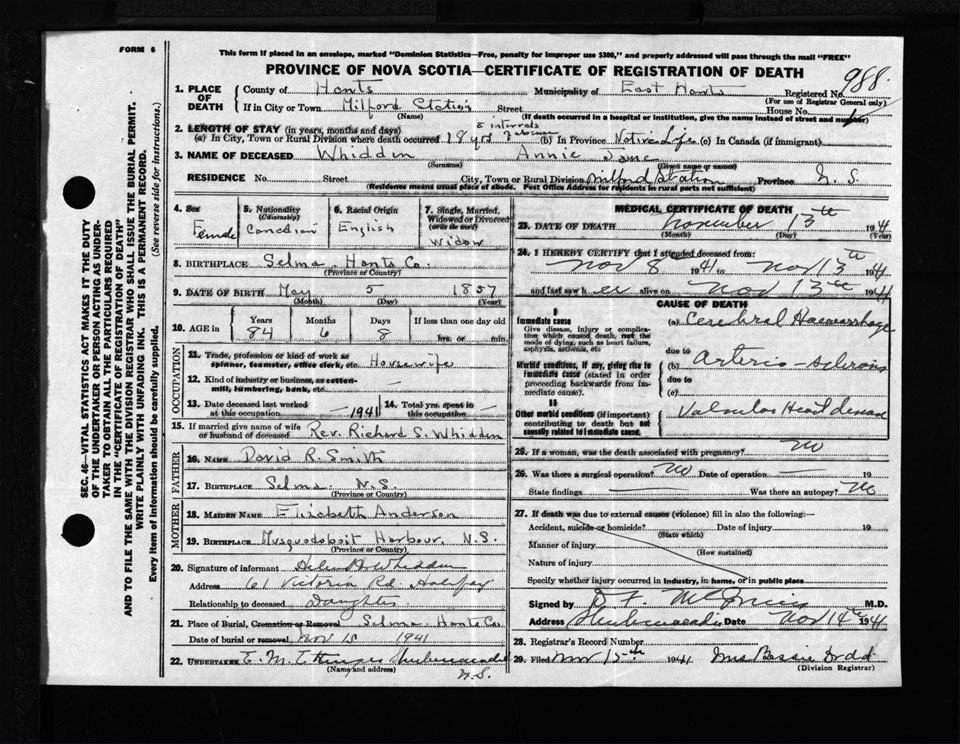 FORM 6
This form if placed in an envelope, marked "Dominion Statistics—Free, penalty for improper use $300," and properly addressed will pass through the mail "FREE"
PROVINCE OF NOVA SCOTIA—CERTIFICATE OF REGISTRATION OF DEATH
988
1. PLACE OF DEATH County of Hants Municipality of East Hants Registered No.
(For use of Registrar General only)
If in City or Town Milford Station Street House No.
(Name) (If death occurred in a hospital or institution, give the name instead of street and number)
2. LENGTH OF STAY (in years, months and days)
(a) In City, Town or Rural Division where death occurred 18 yrs intervals absence (b) In Province Native Life (c) In Canada (if immigrant)
3. NAME OF DECEASED Whidden Annie Jane
(Surname) (Given name or names)
RESIDENCE No. Street City, Town or Rural Division Milford Station Province N. S.
(Residence means usual place of abode. Post Office Address for residents in rural parts not sufficient)
SEC. 46—VITAL STATISTICS ACT MAKES IT THE DUTY
OF THE UNDERTAKER OR PERSON ACTING AS UNDER-
TAKER TO OBTAIN ALL THE PARTICULARS REQUIRED
IN THE "CERTIFICATE OF REGISTRATION OF DEATH"
AND TO FILE THE SAME WITH THE DIVISION REGISTRAR WHO SHALL ISSUE THE BURIAL PERMIT.
WRITE PLAINLY WITH UNFADING INK. THIS IS A PERMANENT RECORD.
Every item of information should be carefully supplied. (See reverse side for instructions.)
4. Sex Female
5. Nationality (Citizenship) Canadian
6. Racial Origin English
7. Single, Married, Widowed or Divorced (write the word) Widow
8. BIRTHPLACE Selma Hants Co.
(Province or Country)
9. DATE OF BIRTH May 5 1857
(Month) (Day) (Year)
10. AGE in Years 84 Months 6 Days 8 If less than one day old hrs. or min.
OCCUPATION
11. Trade, profession or kind of work as spinner, teamster, office clerk, etc. Housewife
12. Kind of industry or business, as cotton-mill, lumbering, bank, etc. —
13. Date deceased last worked at this occupation —1941
14. Total yrs. spent in this occupation —
15. If married give name of wife or husband of deceased Rev. Richard S. Whidden
FATHER
16. NAME David R. Smith
17. BIRTHPLACE Selma N.S.
(Province or Country)
MOTHER
18. MAIDEN NAME Elizabeth Anderson
19. BIRTHPLACE Musquodoboit Harbour, N.S.
(Province or Country)
20. Signature of informant Helen Whidden
Address 61 Victoria Rd. Halifax
Relationship to deceased Daughter
21. Place of Burial, Cremation or Removal Selma Hants Co.
Date of burial or removal Nov 15 1941
22. UNDERTAKER E. M. Shubenacadie
(Name and address) N.S.
MEDICAL CERTIFICATE OF DEATH
23. DATE OF DEATH November 13th 1941
(Month) (Day) (Year)
24. I HEREBY CERTIFY that I attended deceased from:
Nov 8 1941 to Nov 13th 1941
and last saw her alive on Nov 13th 1941
CAUSE OF DEATH
I
Immediate cause
Give disease, injury or complication which caused death, not the mode of dying, such as heart failure, asphyxia, asthenia, etc
(a) Cerebral Haemorrhage
due to
Morbid conditions, if any, giving rise to immediate cause (stated in order proceeding backwards from immediate cause).
(b) Arterio Sclerosis
due to
(c)
II
Other morbid conditions (if important) contributing to death but not causally related to immediate cause.
Valvular Heart disease
25. If a woman, was the death associated with pregnancy? No
26. Was there a surgical operation? No Date of operation — 19
State findings — Was there an autopsy? No
27. If death was due to external causes (violence) fill in also the following:—
Accident, suicide or homicide? Date of injury 19
(State which)
Manner of injury
(How sustained)
Nature of injury
Specify whether injury occurred in industry, in home, or in public place
Signed by D F M.D.
Address Shubenacadie Date Nov 14th 1941
28. Registrar's Record Number
29. Filed Nov 15th 1941 Mrs Bessie Dodd
(Division Registrar)